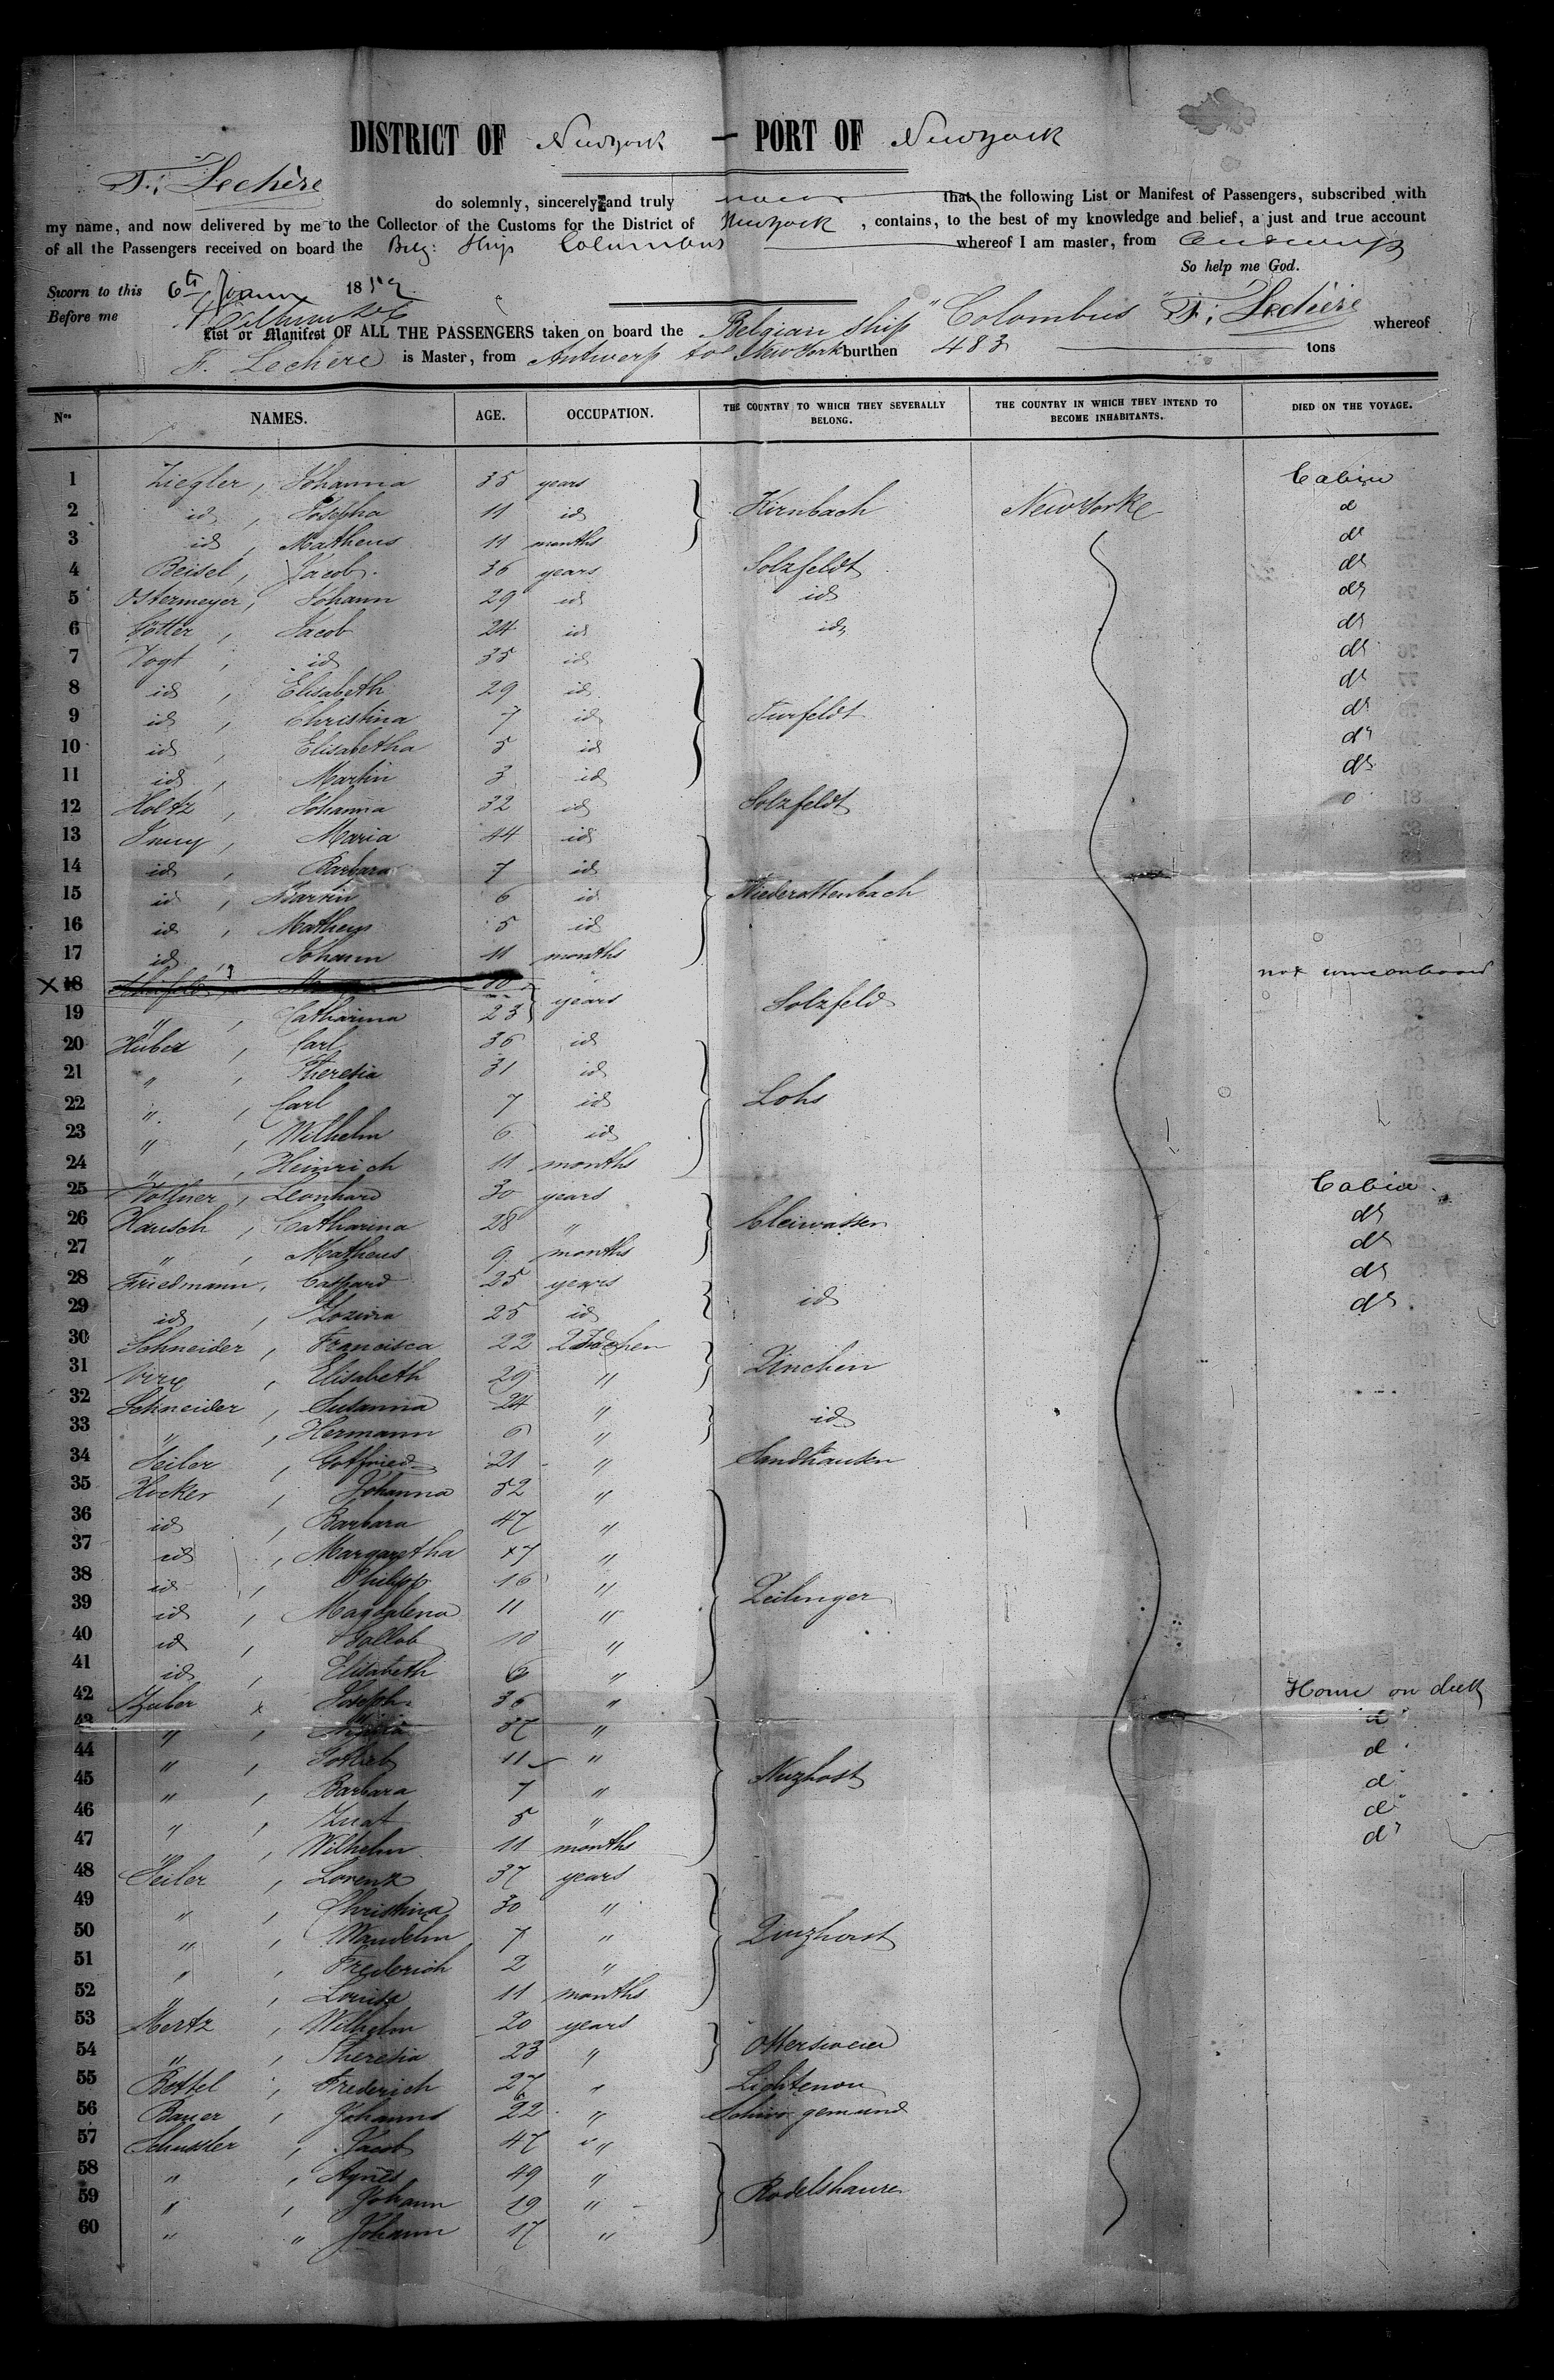 DISTRICT OF Newyork — PORT OF Newyork
F. Lechère do solemnly, sincerely and truly that the following List or Manifest of Passengers, subscribed with
my name, and now delivered by me to the Collector of the Customs for the District of Newyork, contains, to the best of my knowledge and belief, a just and true account
of all the Passengers received on board the Belg: Ship Columbus whereof I am master, from Antwerp
So help me God.
Sworn to this 6th 1852
Before me
List or Manifest OF ALL THE PASSENGERS taken on board the Belgian Ship "Colombus" F. Lechère whereof
F. Lechère is Master, from Antwerp to New York burthen 483 tons
Nos NAMES. AGE. OCCUPATION. THE COUNTRY TO WHICH THEY SEVERALLY BELONG. THE COUNTRY IN WHICH THEY INTEND TO BECOME INHABITANTS. DIED ON THE VOYAGE.
1 Ziegler, Johanna 35 years Cabin
2 id, Josepha 11 id Kirnbach New Yorke do
3 id, Matheus 11 months do
4 Beisel, Jacob 36 years Solzfeldt do
5 Ostermeyer, Johann 29 id id do
6 Jacob 24 id id do
7 Vogt, id 35 id do
8 id, Elisabeth 29 id do
9 id, Christina 7 id Furfeldt do
10 id, Elisabetha 5 id do
11 id, Martin 3 id do
12 Holtz, Johanna 32 id Solzfeldt
13 Maria 44 id
14 id, Barbara 7 id
15 id, Martin 6 id Niederottenbach
16 id, Matheus 5 id
17 id, Johann 11 months
X 18 80 not
19 ", Catharina 23 years Solzfeld
20 Huber, Carl 36 id
21 ", Theresia 31 id
22 ", Carl 7 id Lohs
23 ", Wilhelm 6 id
24 ", Heinrich 11 months
25 Leonhard 30 years Cabin
26 Hausch, Catharina 28 " do
27 ", Matheus 9 months do
28 Friedmann, Caspard 25 years do
29 id, 25 id id do
30 Schneider, Francisca 22
31 Elisabeth 29 " Zinchen
32 Schneider, Susanna 24 " id
33 ", Hermann 6 "
34 Seiler, Gotfried 21 " Sandhausen
35 Hocker, Johanna 52 "
36 id, Barbara 47 "
37 id, Margaretha 17 "
38 id, Philipp 16 " Zeilinger
39 id, Magdalena 11 "
40 id, 10 "
41 id, Elisabeth 6 "
42 Zuber, Joseph 36 " House on deck
43 ", 37 " do
44 ", 11 " do
45 ", Barbara 7 " Nuzhost do
46 ", 5 " do
47 ", Wilhelm 11 months do
48 Seiler, Lorenz 37 years
49 ", Christina 30 "
50 ", Wandelin 7 " Zinzhorst
51 ", Frederich 2 "
52 ", Louisa 11 months
53 Mertz, Wilhelm 20 years
54 ", Theresia 23 " Ottersweier
55 Bettel, Frederich 27 " Lichtenou
56 Bauer, Johanns 22 "
57 Schussler, Jacob 47 "
58 ", Agnes 49 "
59 ", Johann 19 " Rodelshausen
60 " " Johann 17 "